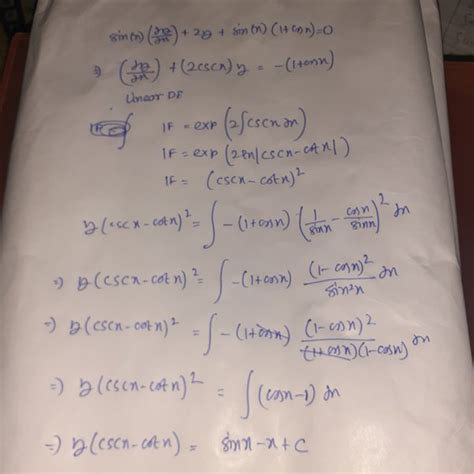 sin(x) (dy/dx) + 2y + sin(x) (1+cosx)=0
⇒ (dy/dx) + (2cscx) y = -(1+cosx)
Linear DE
IF = exp (2∫cscx dx)
IF = exp (2ln|cscx-cotx|)
IF = (cscx-cotx)²
y(cscx-cotx)² = ∫-(1+cosx) (1/sinx - cosx/sinx)² dx
⇒ y(cscx-cotx)² = ∫-(1+cosx) (1-cosx)²/sin²x dx
⇒ y(cscx-cotx)² = ∫-(1+cosx) (1-cosx)²/(1+cosx)(1-cosx) dx
⇒ y(cscx-cotx)² = ∫(cosx-1) dx
⇒ y(cscx-cotx) = sinx-x+c